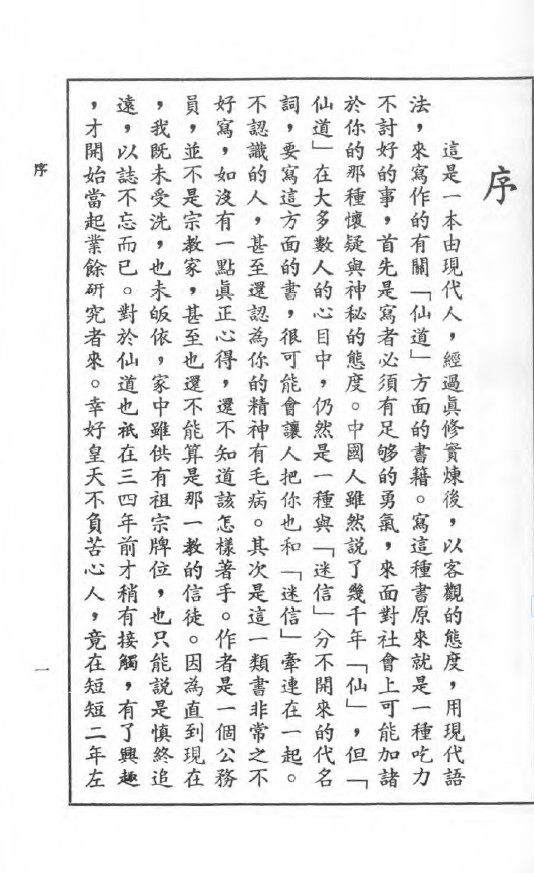 序
這是一本由現代人，經過眞修實煉後，以客觀的態度，用現代語
法，來寫作的有關「仙道」方面的書籍。寫這種書原來就是一種吃力
不討好的事，首先是寫者必須有足够的勇氣，來面對社會上可能加諸
於你的那種懷疑與神秘的態度。中國人雖然說了幾千年「仙」，但「
仙道」在大多數人的心目中，仍然是一種與「迷信」分不開來的代名
詞，要寫這方面的書，很可能會讓人把你也和「迷信」牽連在一起。
不認識的人，甚至還認為你的精神有毛病。其次是這一類書非常之不
好寫，如沒有一點眞正心得，還不知道該怎樣著手。作者是一個公務
員，並不是宗教家，甚至也還不能算是那一教的信徒。因為直到現在
，我既未受洗，也未皈依，家中雖供有祖宗牌位，也只能說是慎終追
遠，以誌不忘而已。對於仙道也祇在三四年前才稍有接觸，有了興趣
，才開始當起業餘研究者來。幸好皇天不負苦心人，竟在短短二年左
序
一